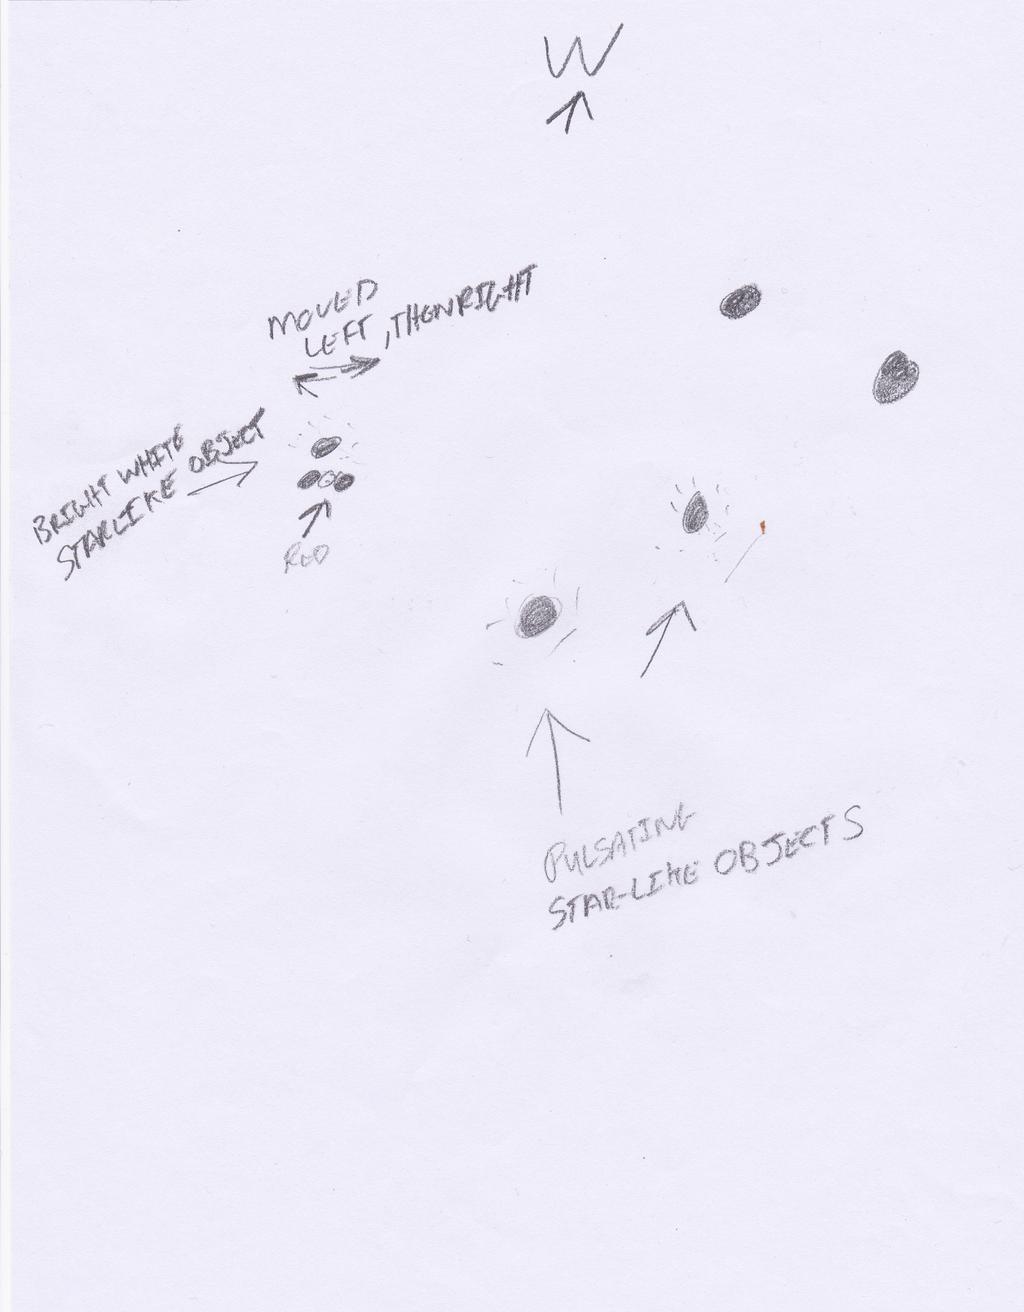 W
MOVED
LEFT, THEN RIGHT
BRIGHT WHITE
STARLIKE OBJECT
RED
PULSATING
STAR-LIKE OBJECTS